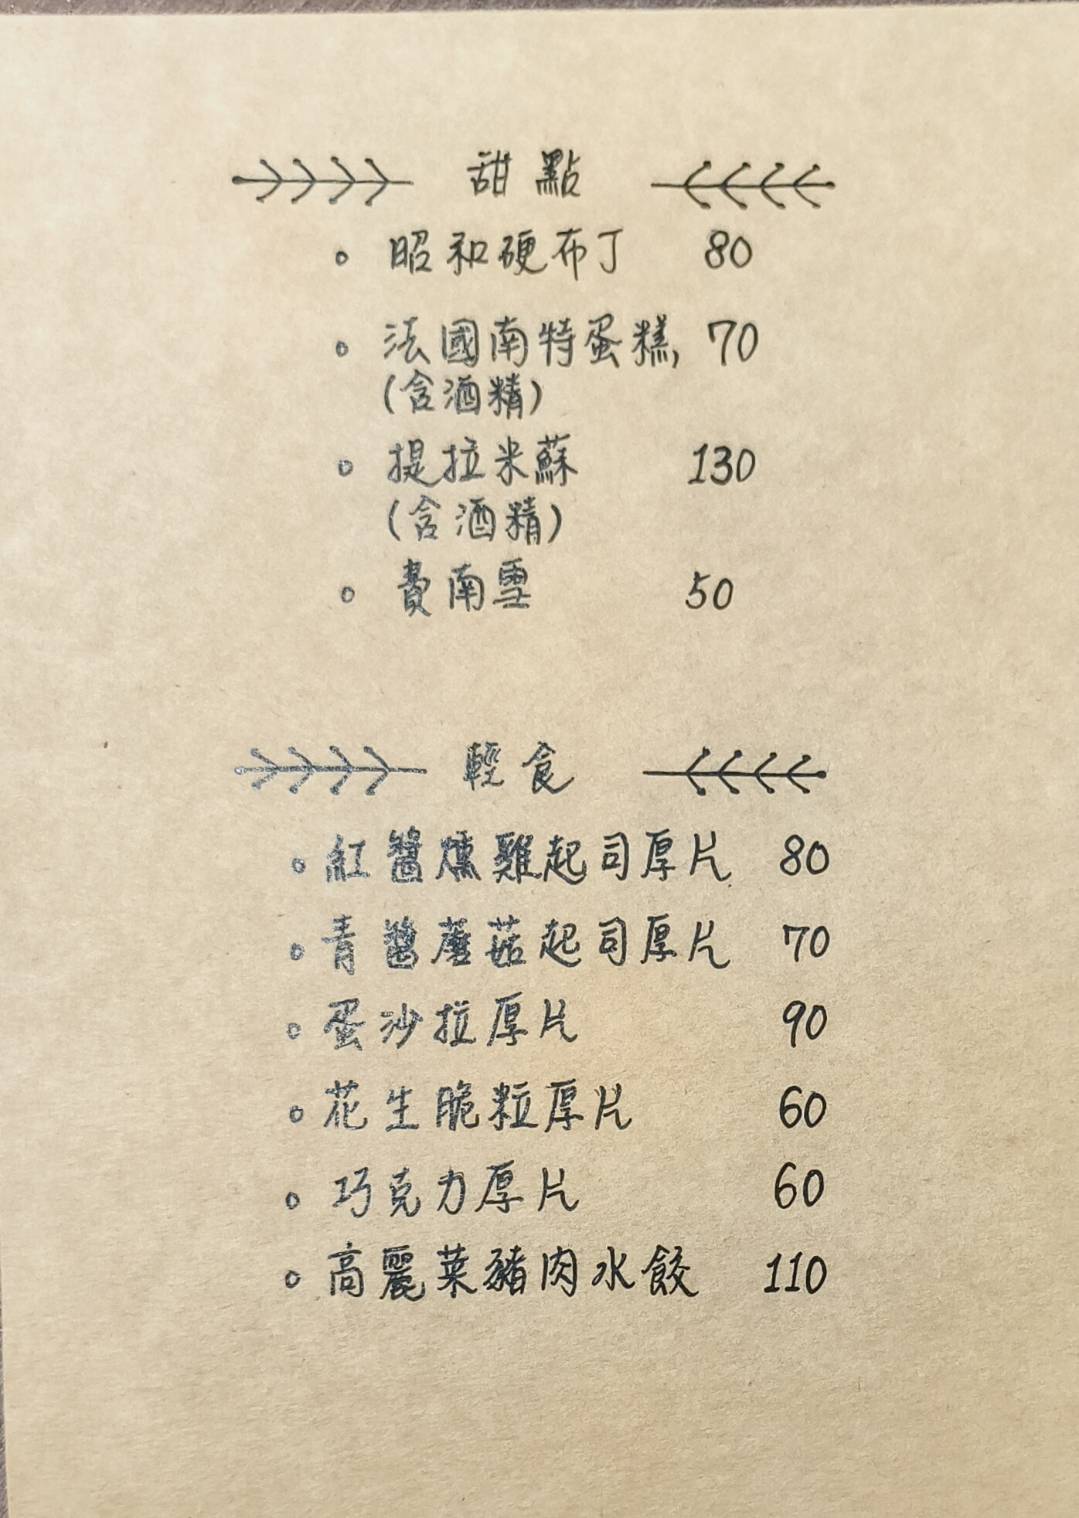 甜點
昭和硬布丁 80
法國南特蛋糕, 70
(含酒精)
提拉米蘇 130
(含酒精)
費南雪 50
輕食
紅醬燻雞起司厚片 80
青醬蘑菇起司厚片 70
蛋沙拉厚片 90
花生脆粒厚片 60
巧克力厚片 60
高麗菜豬肉水餃 110